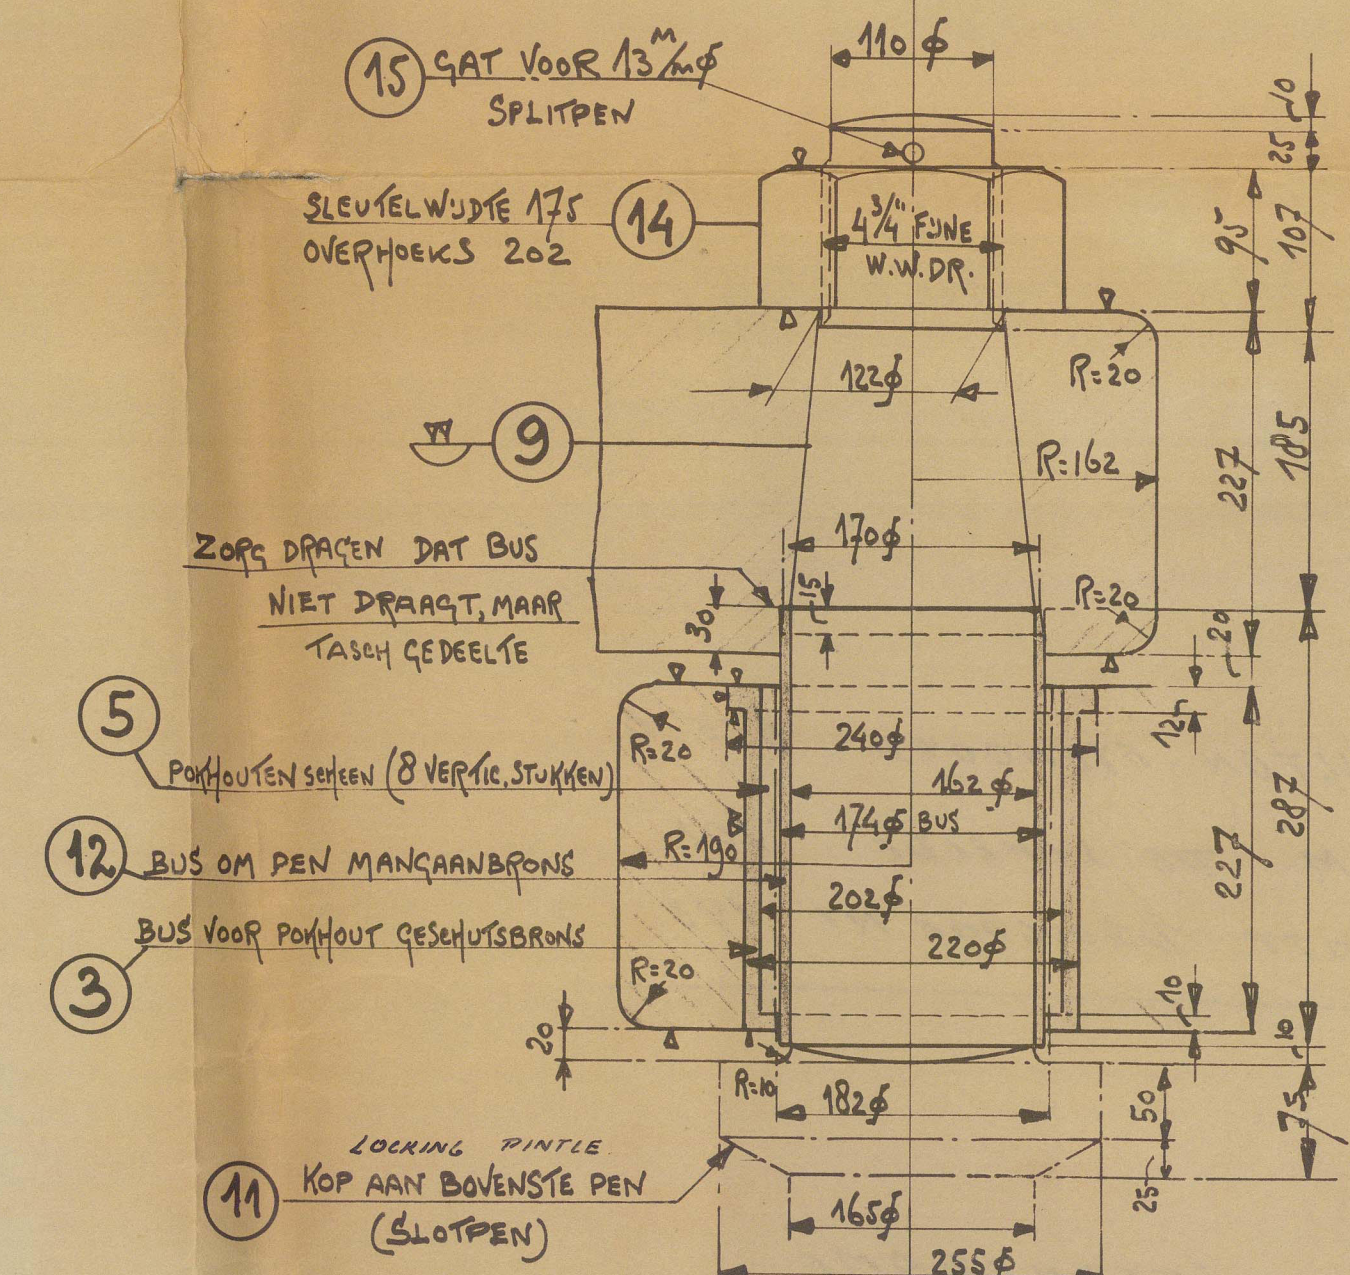 15 GAT VOOR 13 M/m ϕ
SPLITPEN
110 ϕ
10
25
SLEUTELWIJDTE 175
OVERHOEKS 202
14
4 3/4" FIJNE
W.W.DR.
95
107
122ϕ
R=20
9
R=162
227
185
ZORG DRAGEN DAT BUS
NIET DRAAGT, MAAR
TASCH GEDEELTE
170ϕ
15
30
R=20
20
5
POKHOUTEN SCHEEN (8 VERTIC. STUKKEN)
R=20
240ϕ
12
162ϕ
174ϕ BUS
287
227
12 BUS OM PEN MANGAANBRONS
R=190
202ϕ
BUS VOOR POKHOUT GESCHUTSBRONS
3
220ϕ
R=20
10
20
10
R=10
182ϕ
50
75
25
LOCKING PINTLE
11 KOP AAN BOVENSTE PEN
(SLOTPEN)
165ϕ
255ϕ